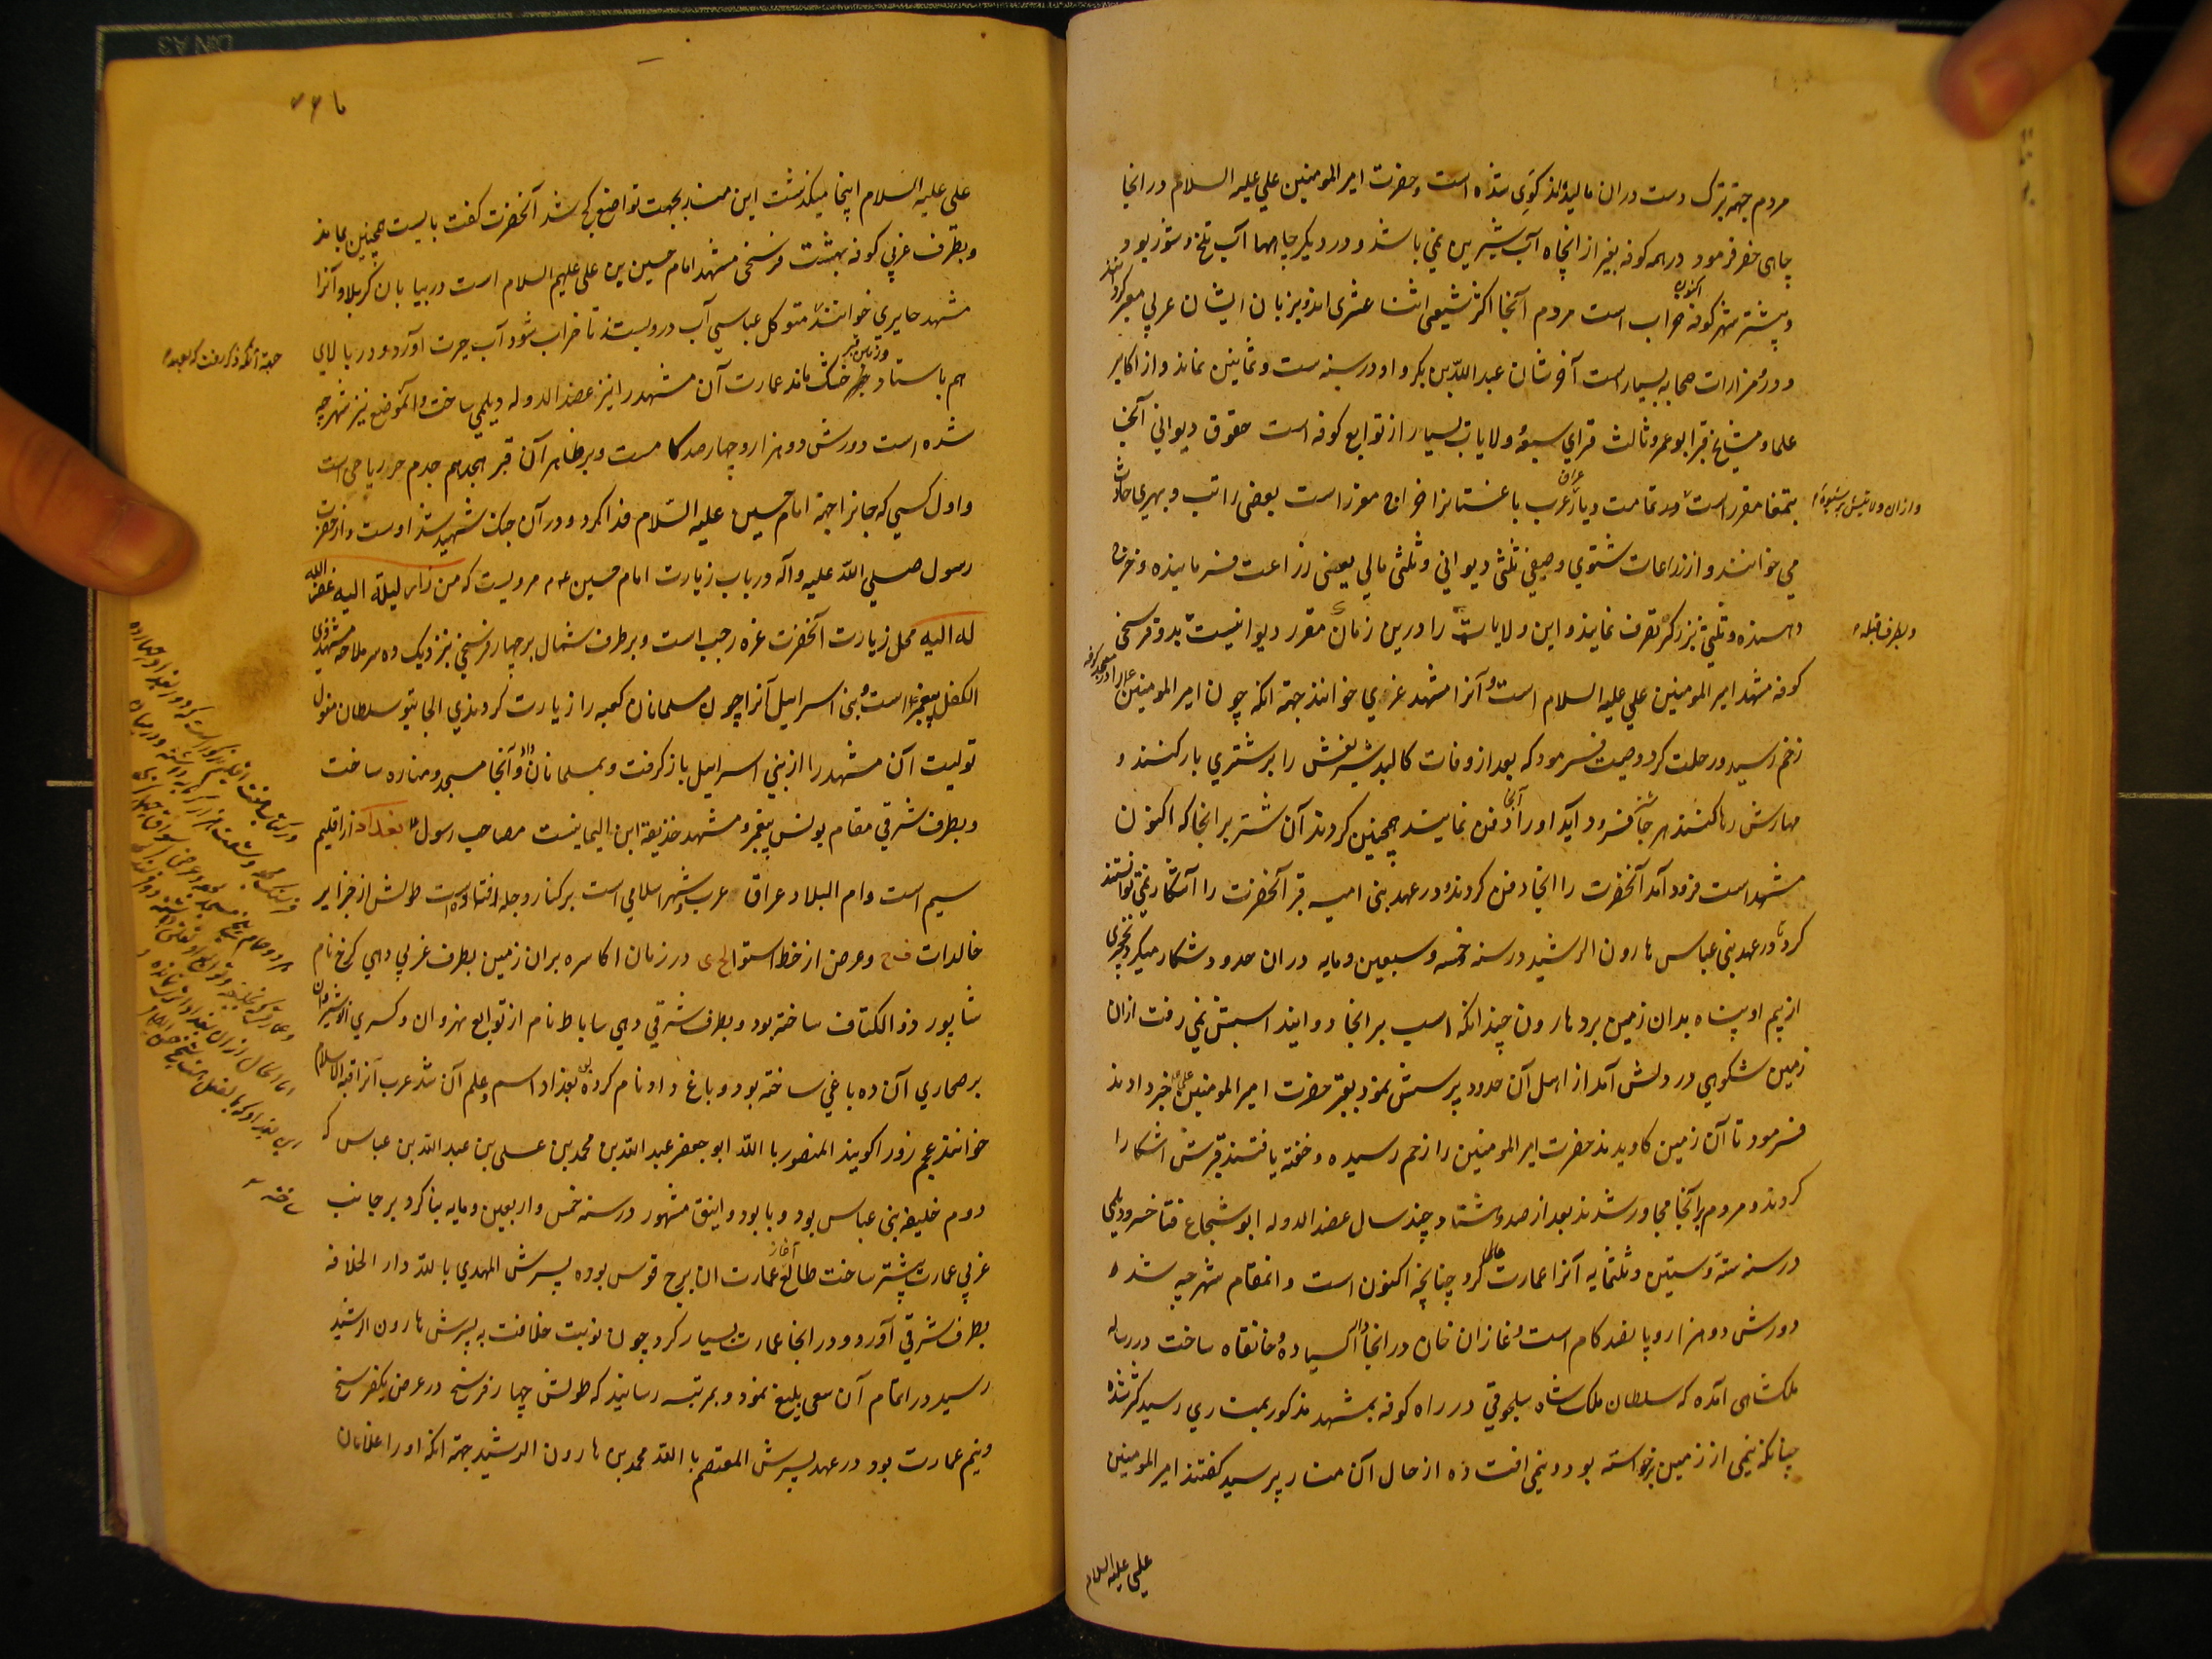 مردم جهة تبرک دست دران مالیده‌اند کوی شده است و حضرت امیر المومنین علی علیه السلام در انجا
چاهی حفر فرمود در همه کوفه بغیر از انچاه آب شیرین نمی باشد و در دیکر چاهها آب تلخ و شور بود و
پیشتر شهر کوفه اکنون خراب است مردم آنجا اکثر شیعی اثنا عشری اند و بزبان ایشان عربی مغیر کرده‌اند
و درو مزارات صحابه بسیار است آخرشان عبد الله بن بکر و او در سنه ست و ثمانین نماند و از اکابر
علما و مشایخ قبر ابو عمرو ثالث قرای سبعه و ولایات بسیار از توابع کوفه است حقوق دیوانی آنجا
بتمغا مقرر است و در تمامت دیار عراق عرب باغستانرا خراج مقرر است بعضی راتب و بهری حادث
وازان ولایتش
می خوانند و از زراعات شتوی و صیفی ثلثی دیوانی و ثلثی مالی یعنی زراعت فرماینده و خرج
دهنده و ثلثی بزرکر تصرف نمایند و این ولایات را درین زمان مقرر دیوانیست بدو فرسخی
وبطرف قبله
کوفه مشهد امیر المومنین علی علیه السلام است و آنرا مشهد غروی خوانند جهة انکه چون امیر المومنین علی را در مسجد کوفه
زخم رسید و رحلت کرد وصیت فرمود که بعد از وفات کالبد شریفش را بر شتری بار کنند و
مهارش رها کنند هر جا شتر فرود آید او را آنجا دفن نمایند همچنین کردند آن شتر بر انجا که اکنون
مشهد است فرود آمد آنحضرت را انجا دفن کردند و در عهد بنی امیه قبر آنحضرت را آشکار نمی توانستند
کرد و در عهد بنی عباس هارون الرشید در سنه خمسه و سبعین و مایه دران حدود شکار میکرد نخچیری
از بیم او پناه بدان زمین برد هارون چندانکه اسب بر انجا دوانید اسبش نمی رفت ازان
زمین شکوهی در دلش آمد از اهل آن حدود پرسش نمود بقبر حضرت امیر المومنین علی خبر دادند
فرمود تا آن زمین کاویدند حضرت امیر المومنین را زخم رسیده و خفته یافتند قبرش اشکارا
کردند و مردم بر آنجا مجاور شدند بعد از صد و هشتاد و چند سال عضد الدوله ابو شجاع فناخسرو دیلمی
در سنه ستة و ستین و ثلثمایه آنرا عمارت عالی کرد چنانچه اکنون است و انمقام شهرچه شده
دورش دو هزار و پانصد کام است و غازان خان در انجا دار السیاده و خانقاه ساخت در رساله
ملکشاهی آمده که سلطان ملکشاه سلجوقی در راه کوفه بمشهد مذکور بمناری رسید کژ شده
چنانکه نیمی از زمین برخواسته بود و نیمی افتاده از حال آن منار پرسید کفتند امیر المومنین
علی علیه السلام
علی علیه السلام اینجا میکذشت این منار بجهت تواضع کج شد آنحضرت کفت بایست همچنین بماند
و بطرف غربی کوفه بهشت فرسخی مشهد امام حسین بن علی علیهم السلام است در بیابان کربلا و آنرا
مشهد حایری خوانند متوکل عباسی آب درو بست تا خراب شود آب حیرت آورد و در بالای
جهة آنکه ذکر رفت که بعهد
هم باستاد و زمین قبر خشک ماند عمارت آن مشهد را نیز عضد الدوله دیلمی ساخت و آنموضع نیز شهرچه
شده است دورش دو هزار و چهار صد کامست و بر ظاهر آن قبر هجدهم جدم حر ریاحی است
و اول کسی که جانرا جهة امام حسین علیه السلام فدا کرد و در آن جنک شهید شد اوست و از حضرت
رسول صلی الله علیه وآله در باب زیارت امام حسین مرویست که من زار لیلة الیه غفر الله
له الیه محل زیارت آنحضرت غره رجب است و بر طرف شمال بر چهار فرسخی نزدیک ده سرملاحه مشهد ذی
الکفل پیغمبر است و بنی اسراییل آنرا چون مسلمانان کعبه را زیارت کردندی الجایتو سلطان مغول
تولیت آن مشهد را از بنی اسراییل باز کرفت و بمسلمانان داد و آنجا مسجد و مناره ساخت
و بطرف شرقی مقام یونس پیغمبر و مشهد حذیفة ابن الیمانیست مصاحب رسول بغداد از اقلیم
سیم است و ام البلاد عراق عرب و شهر اسلامی است بر کنار دجله افتاده است طولش از جزایر
خالدات فح و عرض از خط استوا لح ی در زمان اکاسره بران زمین بطرف غربی دهی کرخ نام
شاپور ذو الکتاف ساخته بود و بطرف شرقی دهی ساباط نام از توابع نهروان و کسری انوشیروان
بر صحاری آن ده باغی ساخته بود و باغ داد نام کرده بغداد اسم علم آن شد عرب آنرا قبة الاسلام
خوانند عجم زورا کویند المنصور بالله ابو جعفر عبد الله بن محمد بن علی بن عبد الله بن عباس که
دوم خلیفه بنی عباس بود و بابو دوانیق مشهور در سنه خمس و اربعین و مایه بنا کرد بر جانب
غربی عمارت پیشتر ساخت طالع آغاز عمارت ان برج قوس بوده پسرش المهدی بالله دار الخلافه
بطرف شرقی آورد و در انجا عمارت بسیار کرد چون نوبت خلافت به پسرش هارون الرشید
رسید در اتمام آن سعی بلیغ نمود و بمرتبه رسانید که طولش چهار فرسخ در عرض یکفرسخ
و نیم عمارت بود در عهد پسرش المعتصم بالله محمد بن هارون الرشید جهة انکه او را غلامان
ساخته